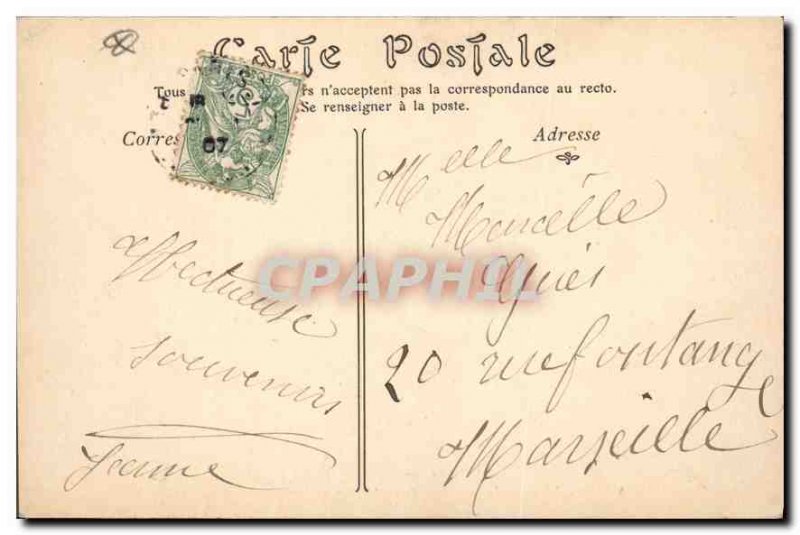 Carte Postale
Tous rs n'acceptent pas la correspondance au recto.
Se renseigner à la poste.
Corres
Adresse
07
Melle
Marcelle
20 rue fontange
Marseille
Affectueuse
souvenirs
Jeanne
CPAPHIL